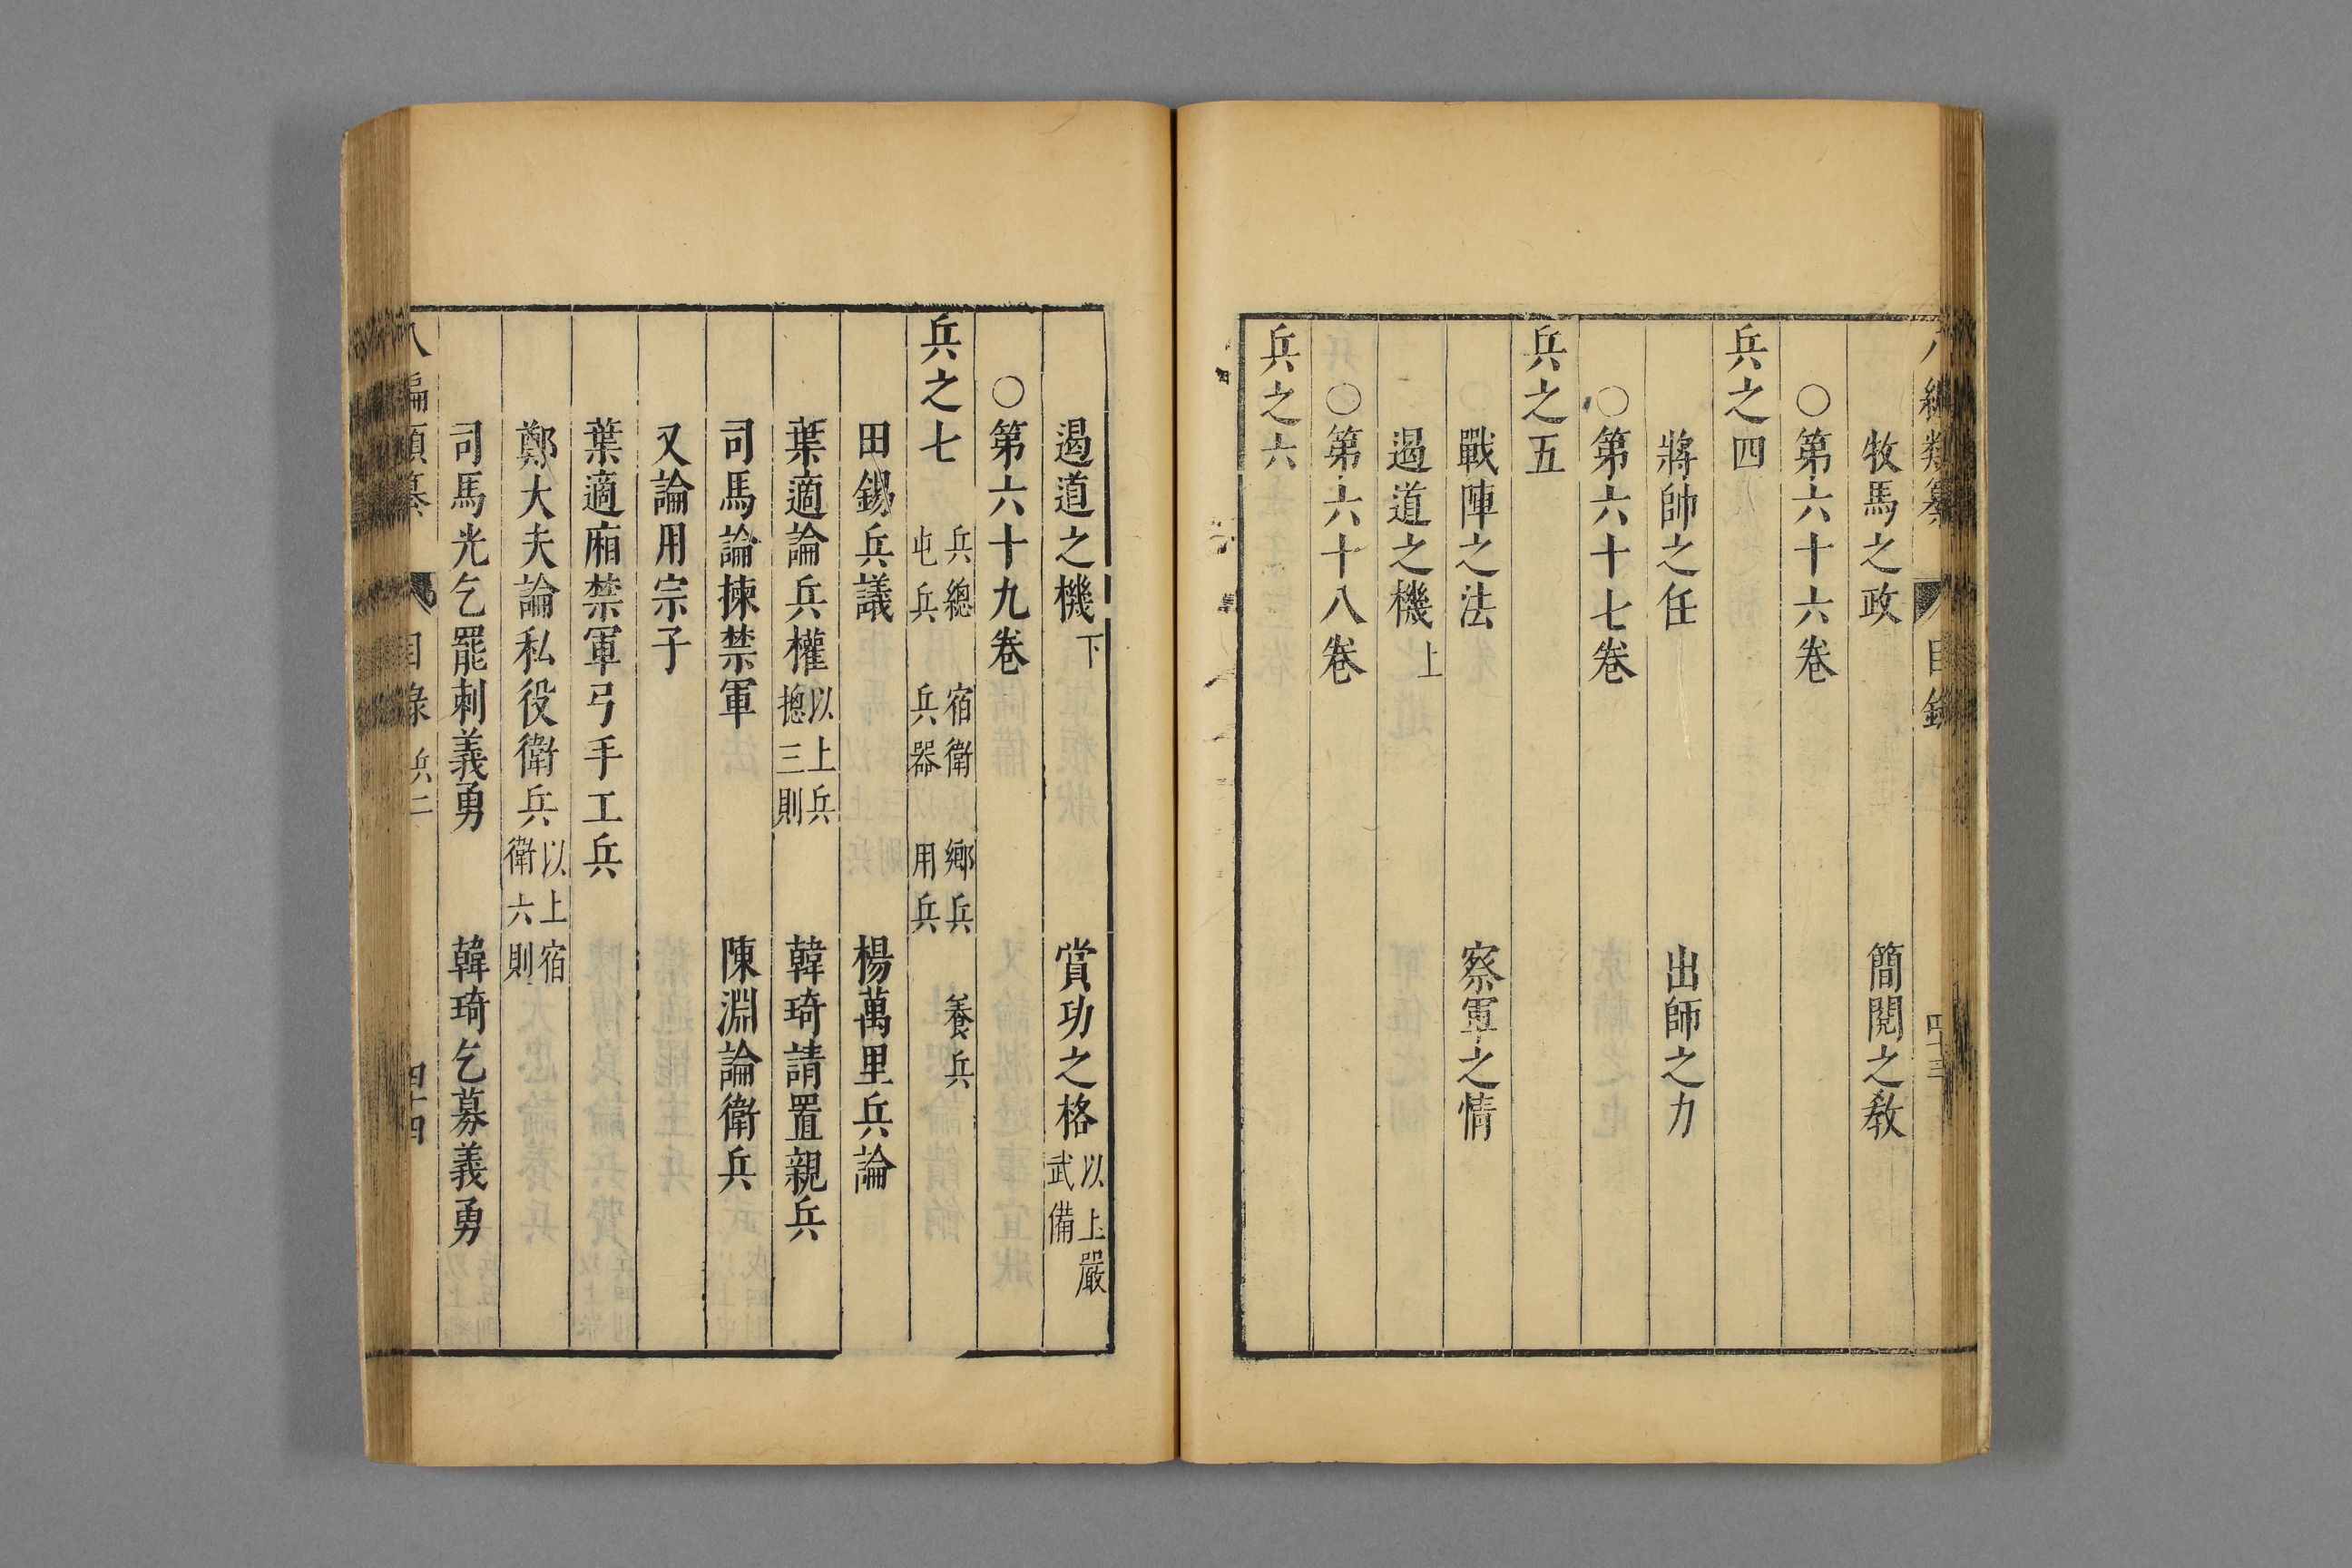 牧馬之政　簡閱之教
○第六十六卷
兵之四
將帥之任　出師之力
○第六十七卷
兵之五
戰陣之法　察軍之情
遏道之機上
○第六十八卷
兵之六
遏道之機下　賞功之格以上嚴武備
○第六十九卷
兵之七　兵總　宿衛　鄉兵　養兵　屯兵　兵器　用兵
田錫兵議　楊萬里兵論
葉適論兵權以上兵摠三則　韓琦請置親兵
司馬論揀禁軍　陳淵論衛兵
又論用宗子
葉適廂禁軍弓手工兵
鄭大夫論私役衛兵以上宿衛六則
司馬光乞罷刺義勇　韓琦乞募義勇
八編類纂　目錄　兵二　四十四